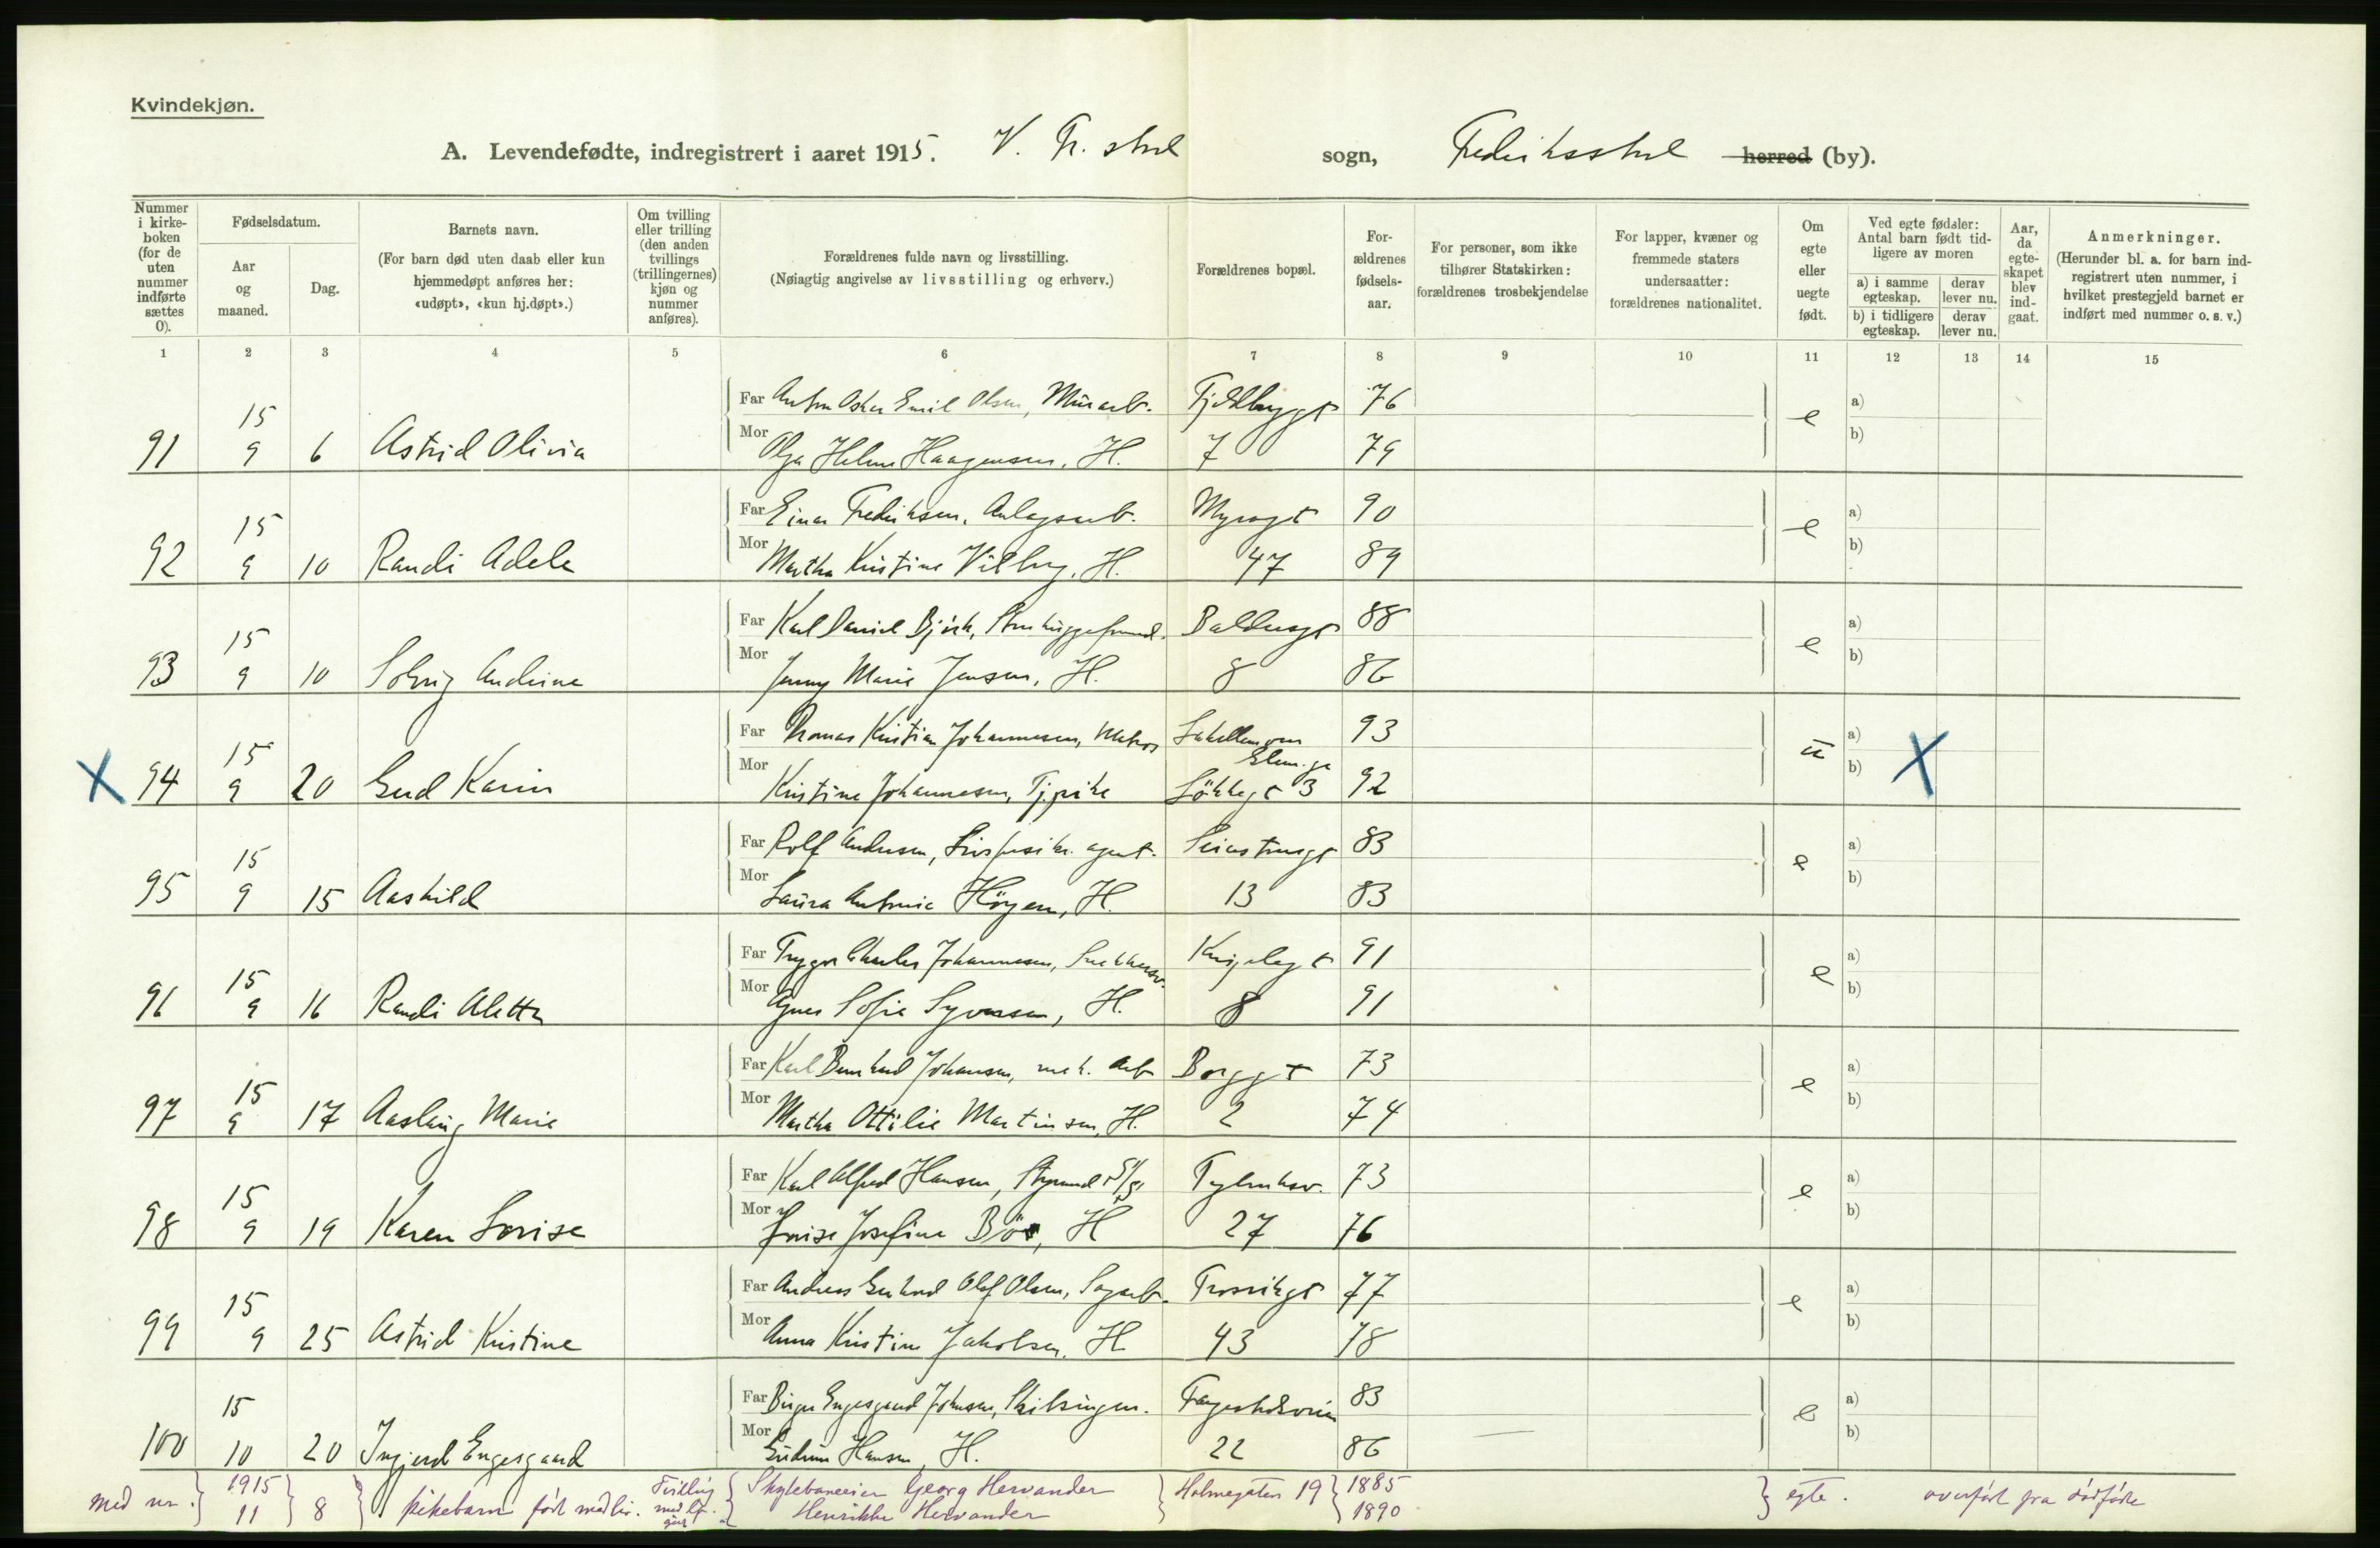 Kvindekjøn.
A. Levendefødte, indregistrert i aaret 1915. V. Fr.stad sogn, Frederiksstad herred (by).
Nummer i kirkeboken (for de uten nummer indførte sættes 0).
Fødselsdatum.
Aar og maaned.
Dag.
Barnets navn.
(For barn død uten daab eller kun hjemmedøpt anføres her: «udøpt», «kun hj.døpt».)
Om tvilling eller trilling (den anden tvillings (trillingernes) kjøn og nummer anføres).
Forældrenes fulde navn og livsstilling.
(Nøiagtig angivelse av livsstilling og erhverv.)
Forældrenes bopæl.
Forældrenes fødselsaar.
For personer, som ikke tilhører Statskirken: forældrenes trosbekjendelse
For lapper, kvæner og fremmede staters undersaatter: forældrenes nationalitet.
Om egte eller uegte født.
Ved egte fødsler: Antal barn født tidligere av moren
a) i samme egteskap. derav lever nu.
b) i tidligere egteskap. derav lever nu.
Aar, da egteskapet blev indgaat.
Anmerkninger.
(Herunder bl. a. for barn indregistrert uten nummer, i hvilket prestegjeld barnet er indført med nummer o. s. v.)
1 2 3 4 5 6 7 8 9 10 11 12 13 14 15
Far Anton Oskar Emil Olsen, Murarb. 76
15 e a)
91 9 6 Astrid Olivia Mor Olga Helene Haagensen, H. 7 79 b)
Far Einar Fredriksen, Anlagsarb. Myragt 90
15 e a)
92 9 10 Randi Adele Mor Martha Kristine H. 47 89 b)
Far Karl Daniel Björk, Stenhuggeformand. Baldersgt 88
15 e a)
93 9 10 Solveig Andrine Mor Jenny Marie Jensen, H. 8 86 b)
Far Thomas Kristian Johannesen, Matros 93
15 u a)
X 94 9 20 Gud Karin Mor Kristine Johannesen, Tj.pike 3 92 b) X
Far Rolf Andersen, agent. 83
15 e a)
95 9 15 Aashild Mor Laura Antonie Höyen, H. 13 83 b)
Far Trygve Charles Johannesen, Snekkersv. 91
15 e a)
96 9 16 Randi Aletta Mor Agnes Sofie Syversen, H. 8 91 b)
Far Karl Bernhard Johansen, mek. Arb Borggt 73
15 e a)
97 9 17 Aaslaug Marie Mor Martha Ottilie Martinsen, H. 2 74 b)
Far Karl Alfred Hansen, Styrmand S/S 73
15 e a)
98 9 19 Karen Lovise Mor Lovise Josefine H 27 76 b)
Far Andreas Gerhard Olaf Olsen, Sagarb. Trosvikgt 77
15 e a)
99 9 25 Astrid Kristine Mor Anna Kristine Jakobsen, H 43 78 b)
Far Birger Engesgaard Johnsen, Skibsingen. 83
15 e a)
100 10 20 Ingjerd Engesgaard Mor Gudrun Hansen, H. 22 86 b)
med nr. 1915 Tvilling Georg Hervander Holmegaten 19 1885 egte. overfört fra dödfödte
11 8 pikebarn födt med liv. Henrikke Hervander 1890